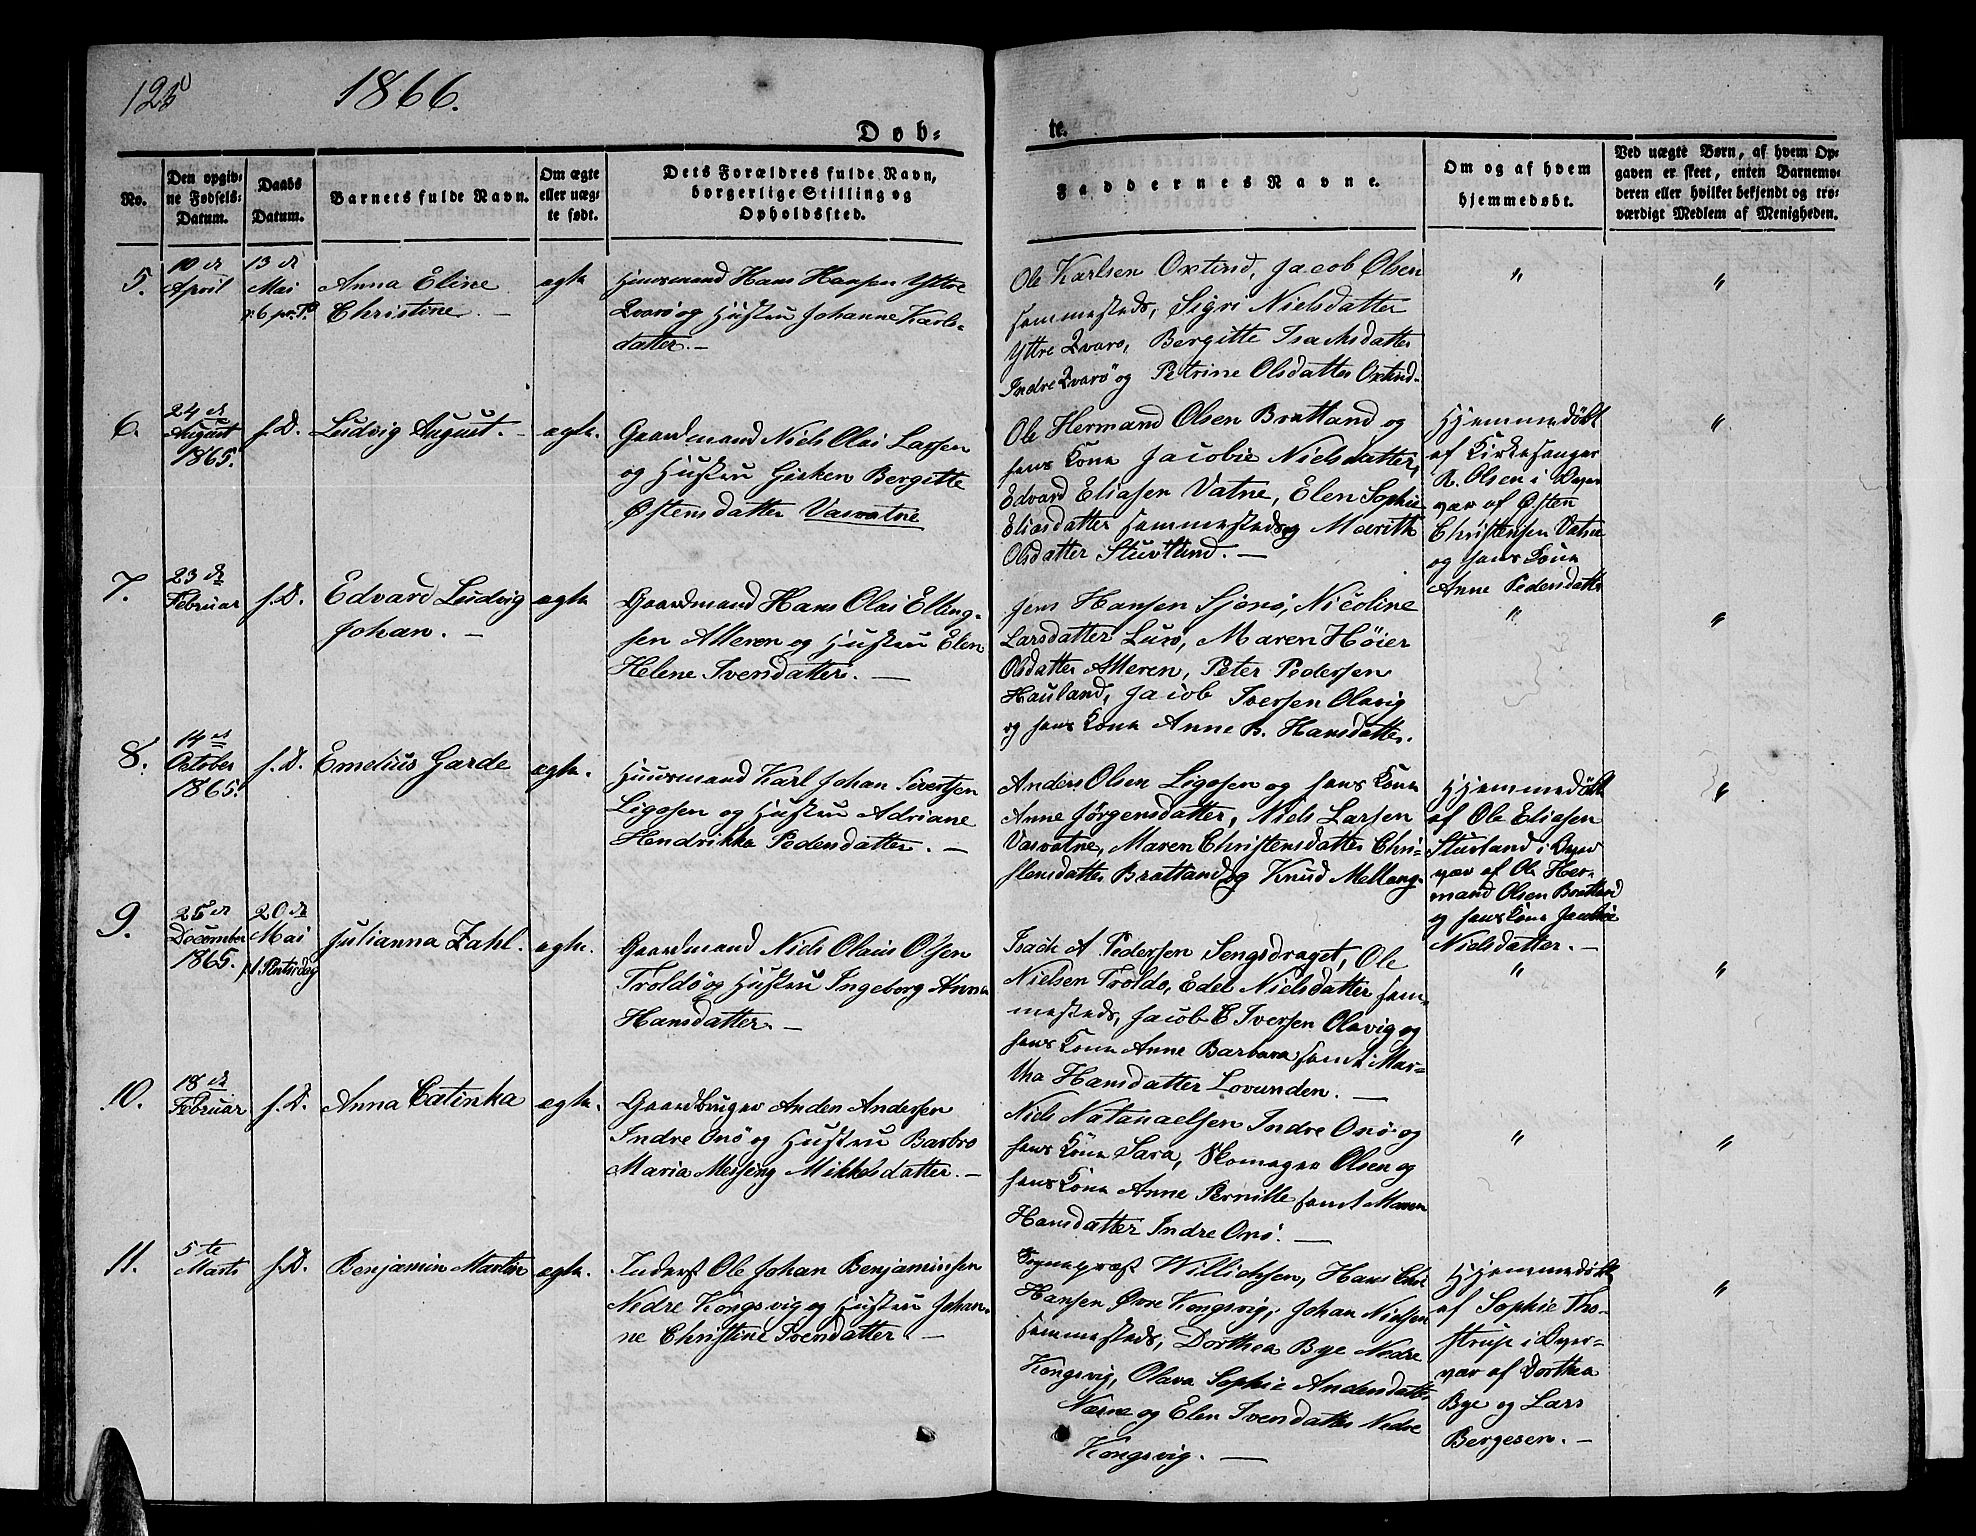 1866.
Døb-
te.
No.
Den opgiv-
ne Fødsels-
Datum.
Daabs
Datum.
Barnets fulde Navn.
Om ægte
eller uæg-
te født.
Dets Forældres fulde Navn,
borgerlige Stilling og
Opholdssted.
Faddernes Navne.
Om og af hvem
hjemmedøbt.
Ved uægte Børn, af hvem Op-
gaven er skeet, enten Barnemo-
deren eller hvilket bekjendt og tro-
værdigt Medlem af Menigheden.
5.
10de
April
13de
Mai
Anna Eline
Christine.
ægte
Huusmand Hans Hansen Yttre
Qvarø og Hustru Johanne Karls-
datter.
Ole Karlsen Oxtind, Jacob Olsen
sammesteds, Sigri Nielsdatter
Yttre Qvarø, Bergitte Isachsdatter
Indre Qvarø og Petrine Olsdatter Oxtind.
"
"
6.
24de
August
1865.
s.D.
Ludvig August.
ægte.
Gaardmand Niels Olai Larsen
og Hustru Gisken Bergitte
Østensdatter Vasvatne
Ole Hermand Olsen Bratland og
hans Kone Jacobie Nielsdatter,
Edvard Eliasen Vatne, Elen Sophie
Eliasdatter sammesteds og Marith
Olsdatter Stuvland.
Hjemmedøbt
af Kirkesanger
R. Olsen i Overvær
af Østen
Christensen Vatne
og hans Kone
Anne Pedersdatter
"
7.
23de
Februar
s.D.
Edvard Ludvig
Johan.
ægte
Gaardmand Hans Olai Elling-
sen Alteren og Hustru Elen
Helene Iversdatter.
Jens Hansen Sjonø, Nicoline
Larsdatter Lurø, Maren Høier
Olsdatter Alteren, Peter Pedersen
Hauland, Jacob Iversen Olavig
og hans Kone Anne B. Hansdatter.
"
"
8.
14de
October
1865.
s.D.
Emelius Garde
ægte.
Huusmand Karl Johan Sivertsen
Ligosen og Hustru Adriane
Hendrikke Pedersdatter.
Anders Olsen Ligosen og hans Kone
Anne Jørgensdatter, Niels Larsen
Vasvatne, Maren Christensdatter Chri-
stensdatter Bratland og Knud Mellang.
Hjemmedøbt
af Ole Eliasen
Stuvland i Over-
vær af Ole Her-
mand Olsen Bratland
og hans Kone Jacobie
Nielsdatter.
"
9.
25de
December
1865.
20de
Mai
1. Pintsedag
Julianna Zahl.
ægte.
Gaardmand Niels Olaus Olsen
Troldø og Hustru Ingeborg Anna
Hansdatter.
Isach A Pedersen Sengsdraget, Ole
Nielsen Troldø, Edel Nielsdatter sam-
mesteds, Jacob E Iversen Olavig og
hans Kone Anne Barbara samt Mar-
tha Hansdatter Lovunden.
"
"
10.
18de
Februar
s.D.
Anna Catinka
ægte.
Gaardbruger Anders Andersen
Indre Onø og Hustru Barbro
Maria Messing Mikkelsdatter.
Niels Natanaelsen Indre Onø og
hans Kone Sara, Skomager Olsen og
hans Kone Anne Pernille samt Maren
Hansdatter Indre Onø.
"
"
11.
5te
Marts
s.D.
Benjamin Martin
ægte.
Inderst Ole Johan Benjaminsen
Nedre Kongsvig og Hustru Johan-
ne Christine Iversdatter
Sognepræst Willichsen, Hans Chr.
Hansen Øvre Kongsvig, Johan Nielsen
sammesteds, Dorthea Bye Nedre
Kongsvig, Olava Sophie Andersdatter
Næsne og Elen Iversdatter Nedre
Kongsvig.
Hjemmedøbt
af Sophie Tho-
strup i Over-
vær af Dorthea
Bye og Lars
Bergesen.
"